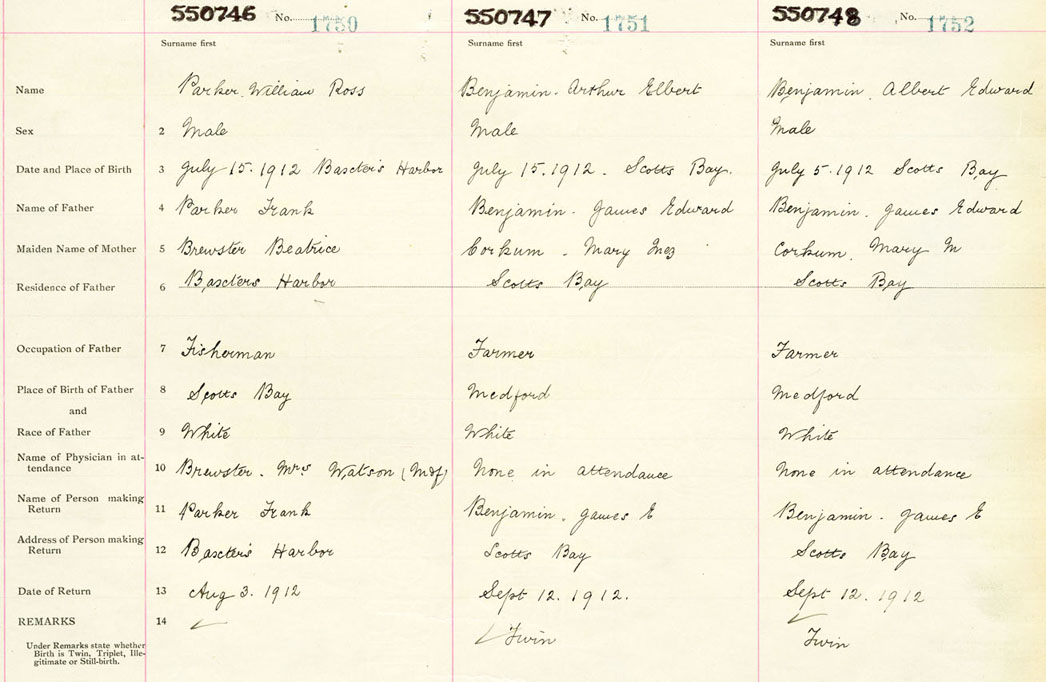 550746 No. 1750 550747 No. 1751 550748 No. 1752
Surname first Surname first Surname first
Name Parker William Ross Benjamin. Arthur Elbert Benjamin. Albert Edward
Sex 2 Male Male Male
Date and Place of Birth 3 July 15. 1912 Baxter's Harbor July 15. 1912. Scotts Bay. July 5. 1912 Scotts Bay
Name of Father 4 Parker Frank Benjamin. James Edward Benjamin. James Edward
Maiden Name of Mother 5 Brewster Beatrice Corkum. Mary Inez Corkum. Mary M
Residence of Father 6 Baxters Harbor Scotts Bay Scotts Bay
Occupation of Father 7 Fisherman Farmer Farmer
Place of Birth of Father 8 Scotts Bay Medford Medford
and
Race of Father 9 White White White
Name of Physician in at-
tendance 10 Brewster. Mrs Watson (Mdf) None in attendance None in attendance
Name of Person making
Return 11 Parker Frank Benjamin. James E Benjamin. James E
Address of Person making
Return 12 Baxter's Harbor Scotts Bay Scotts Bay
Date of Return 13 Aug 3. 1912 Sept 12. 1912. Sept 12. 1912
REMARKS 14 ✓ ✓ Twin ✓ Twin
Under Remarks state whether
Birth is Twin, Triplet, Ille-
gitimate or Still-birth.